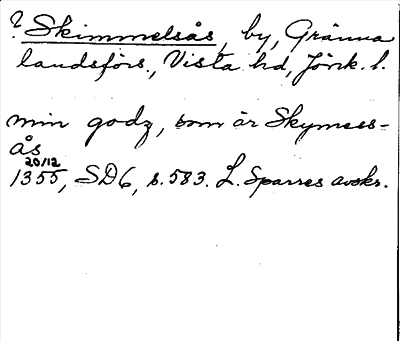 ? Skimmelsås, by, Gränna
landsförs., Vista hd, Jönk. l.
min godz, som är Skymess-
ås
20/12
1355, SD6, s. 583. L. Sparres avskr.